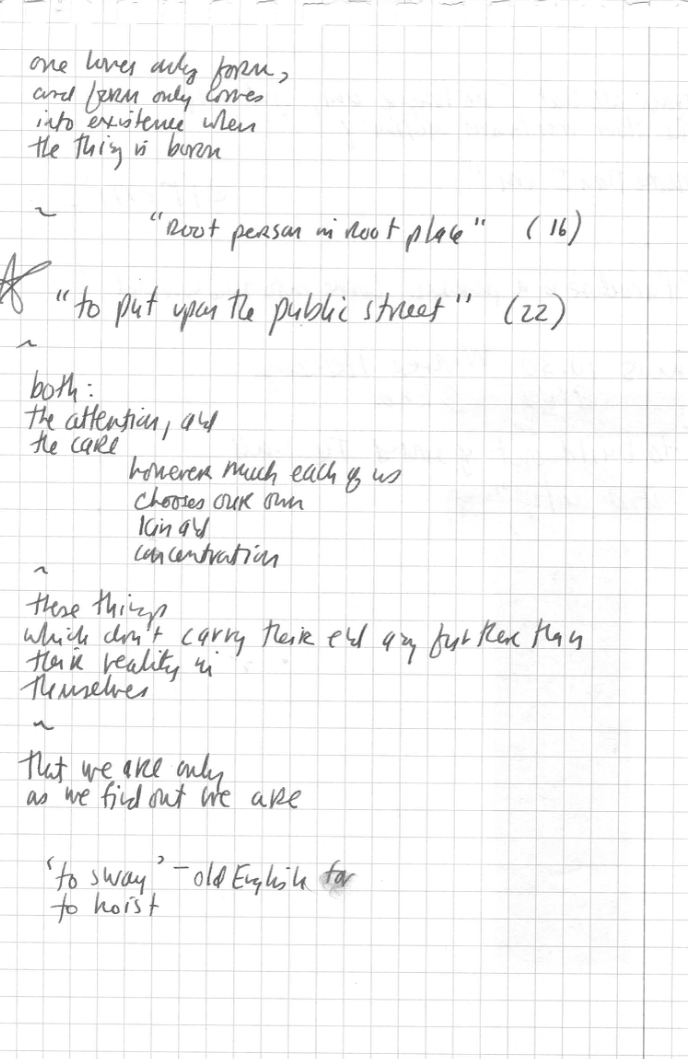 one loves only form,
and form only comes
into existence when
the thing is born
~
"root person in root place" (16)
"to put upon the public street" (22)
~
both:
the attention, and
the care
however much each of us
chooses our own
kin and
concentration
~
these things
which don't carry their end any further than
their reality in
themselves
~
that we are only
as we find out we are
'to sway' – old English for
to hoist